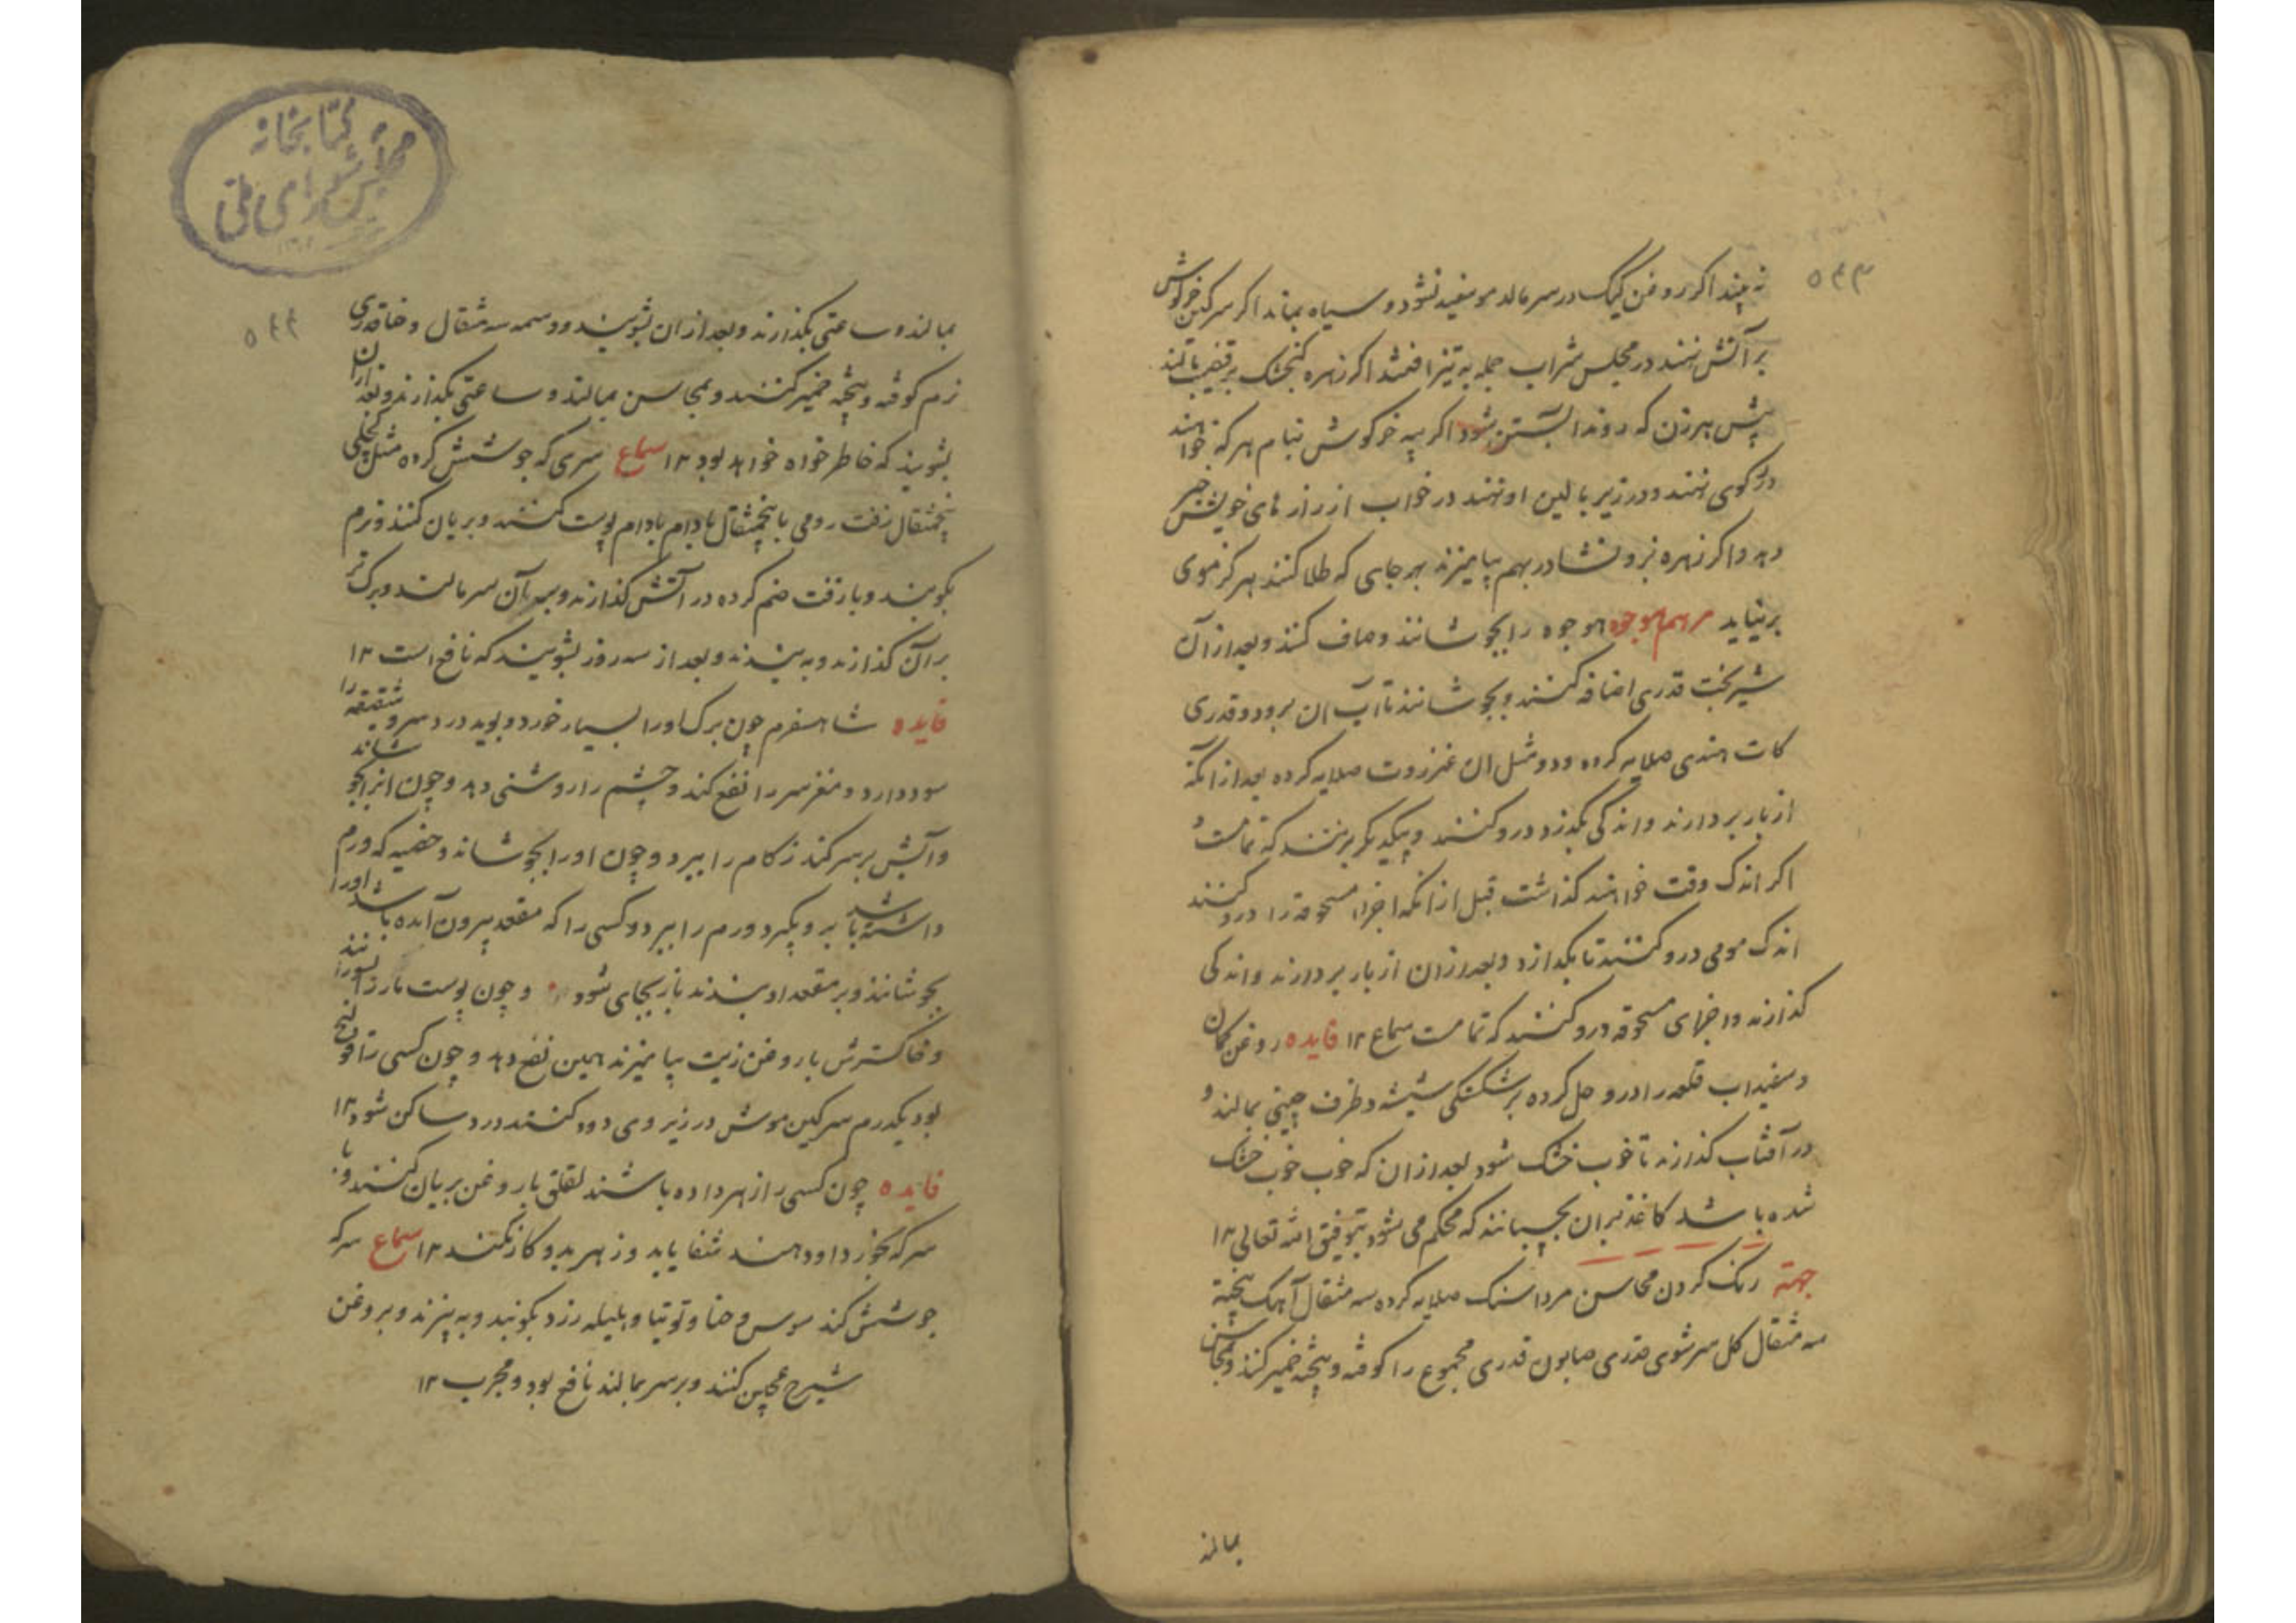 ۵۴۳
نه بیند اکر روغن کیک در سر مالد مو سفید نشود و سیاه بماند اکر سرکین خرکوش
بر آتش نهند در مجلس شراب جمله به تیز افتند اکر زهره کنجشک بر قضیب مالند
پیش هر زن که روند ابستن شود اکر پیه خرکوش بنام هر که خواهند
در کوی نهند و در زیر بالین او نهند در خواب از رازهای خویش خبر
دهد و اکر زهره بز و نشادر بهم بیامیزند بهر جای که طلا کنند هرکز موی
برنیاید مرهم هوجوه هوجوه را بجوشانند و صاف کنند و بعد از آن
شیر بخت قدری اضافه کنند و بجوشانند تا آب ان برود و قدری
کات هندی صلایه کرده و دو مثل ان عنزروت صلایه کرده بعد از آنکه
از بار بردارند و اندکی بگذرد درو کنند و بیکدیکر بزنند که تمامست
اکر اندک وقت خواهند کذاشت قبل از آنکه اجزاء مسحوقه را درو کنند
اندک مومی درو کنند تا بکدازد و بعد از ان از بار بردارند و اندکی
کذارند و اجزای مسحوقه درو کنند که تمامست سماع ۱۲ فایده روغن کمان
و سفیداب قلعی را درو حل کرده بر شکستکی شیشه و ظرف چینی بمالند و
در آفتاب کذارند تا خوب خشک شود بعد از ان که خوب خوب خشک
شده باشد کاغذ بران بچسبانند که محکم می شود بتوفیق الله تعالی ۱۲
جهة رنک کردن محاسن مرداسنک صلایه کرده سه مثقال آهک پخته
سه مثقال کل سرشوی قدری صابون قدری مجموع را کوفته و بیخته خمیر کنند و بمحاسن
بمالند
کتابخانه
مجلس شورای ملی
۵۴۴
بمالند و ساعتی بکذارند و بعد از ان بشویند و وسمه سه مثقال و حنا قدری
نرم کوفته و بیخته خمیر کنند و بمحاسن بمالند و ساعتی بکذارند و بعد از ان
بشویند که خاطر خواه خواهد بود ۱۲ سماع سری که جوشش کرده مثل کچلی
پنجمثقال زفت رومی با پنجمثقال بادام بادام پوست کنند و بریان کنند و نرم
بکوبند و با زفت ضم کرده در آتش کذارند و بعد آن سر مالند و برک تر
بر آن کذارند و به بندند و بعد از سه روز بشویند که نافع است ۱۲
فایده شاهسفرم چون برک او را بسیار خورد و بوید درد سر و شقیقه را
سود دارد و مغز سر را نفع کند و چشم را روشنی دهد و چون انرا بجوشاند
و آبش بر سر کند زکام را ببرد و چون او را بجوشاند و خصیه که ورم
داشته باشد برو بگیرد ورم را ببرد و کسی را که مقعد بیرون آمده باشد او را
بجوشانند و بر مقعد او بندند باز بجای شود و چون پوست مار را بسوزانند
و خاکسترش با روغن زیت بیامیزند همین نفع دهد و چون کسی را قولنج
بود یکدرم سرکین موش در زیر وی دود کنند درد ساکن شود ۱۲
فایده چون کسی را زهر داده باشند لقلق با روغن بریان کنند و با
سرکه بخورد او دهند شفا یابد و زهر بدو کار نکند ۱۲ سماع سر که
جوشش کند سوس و حنا و توتیا و هلیله زرد بکوبند و به پزند و بروغن
شیرج عجین کنند و بر سر بمالند نافع بود و مجرب ۱۲